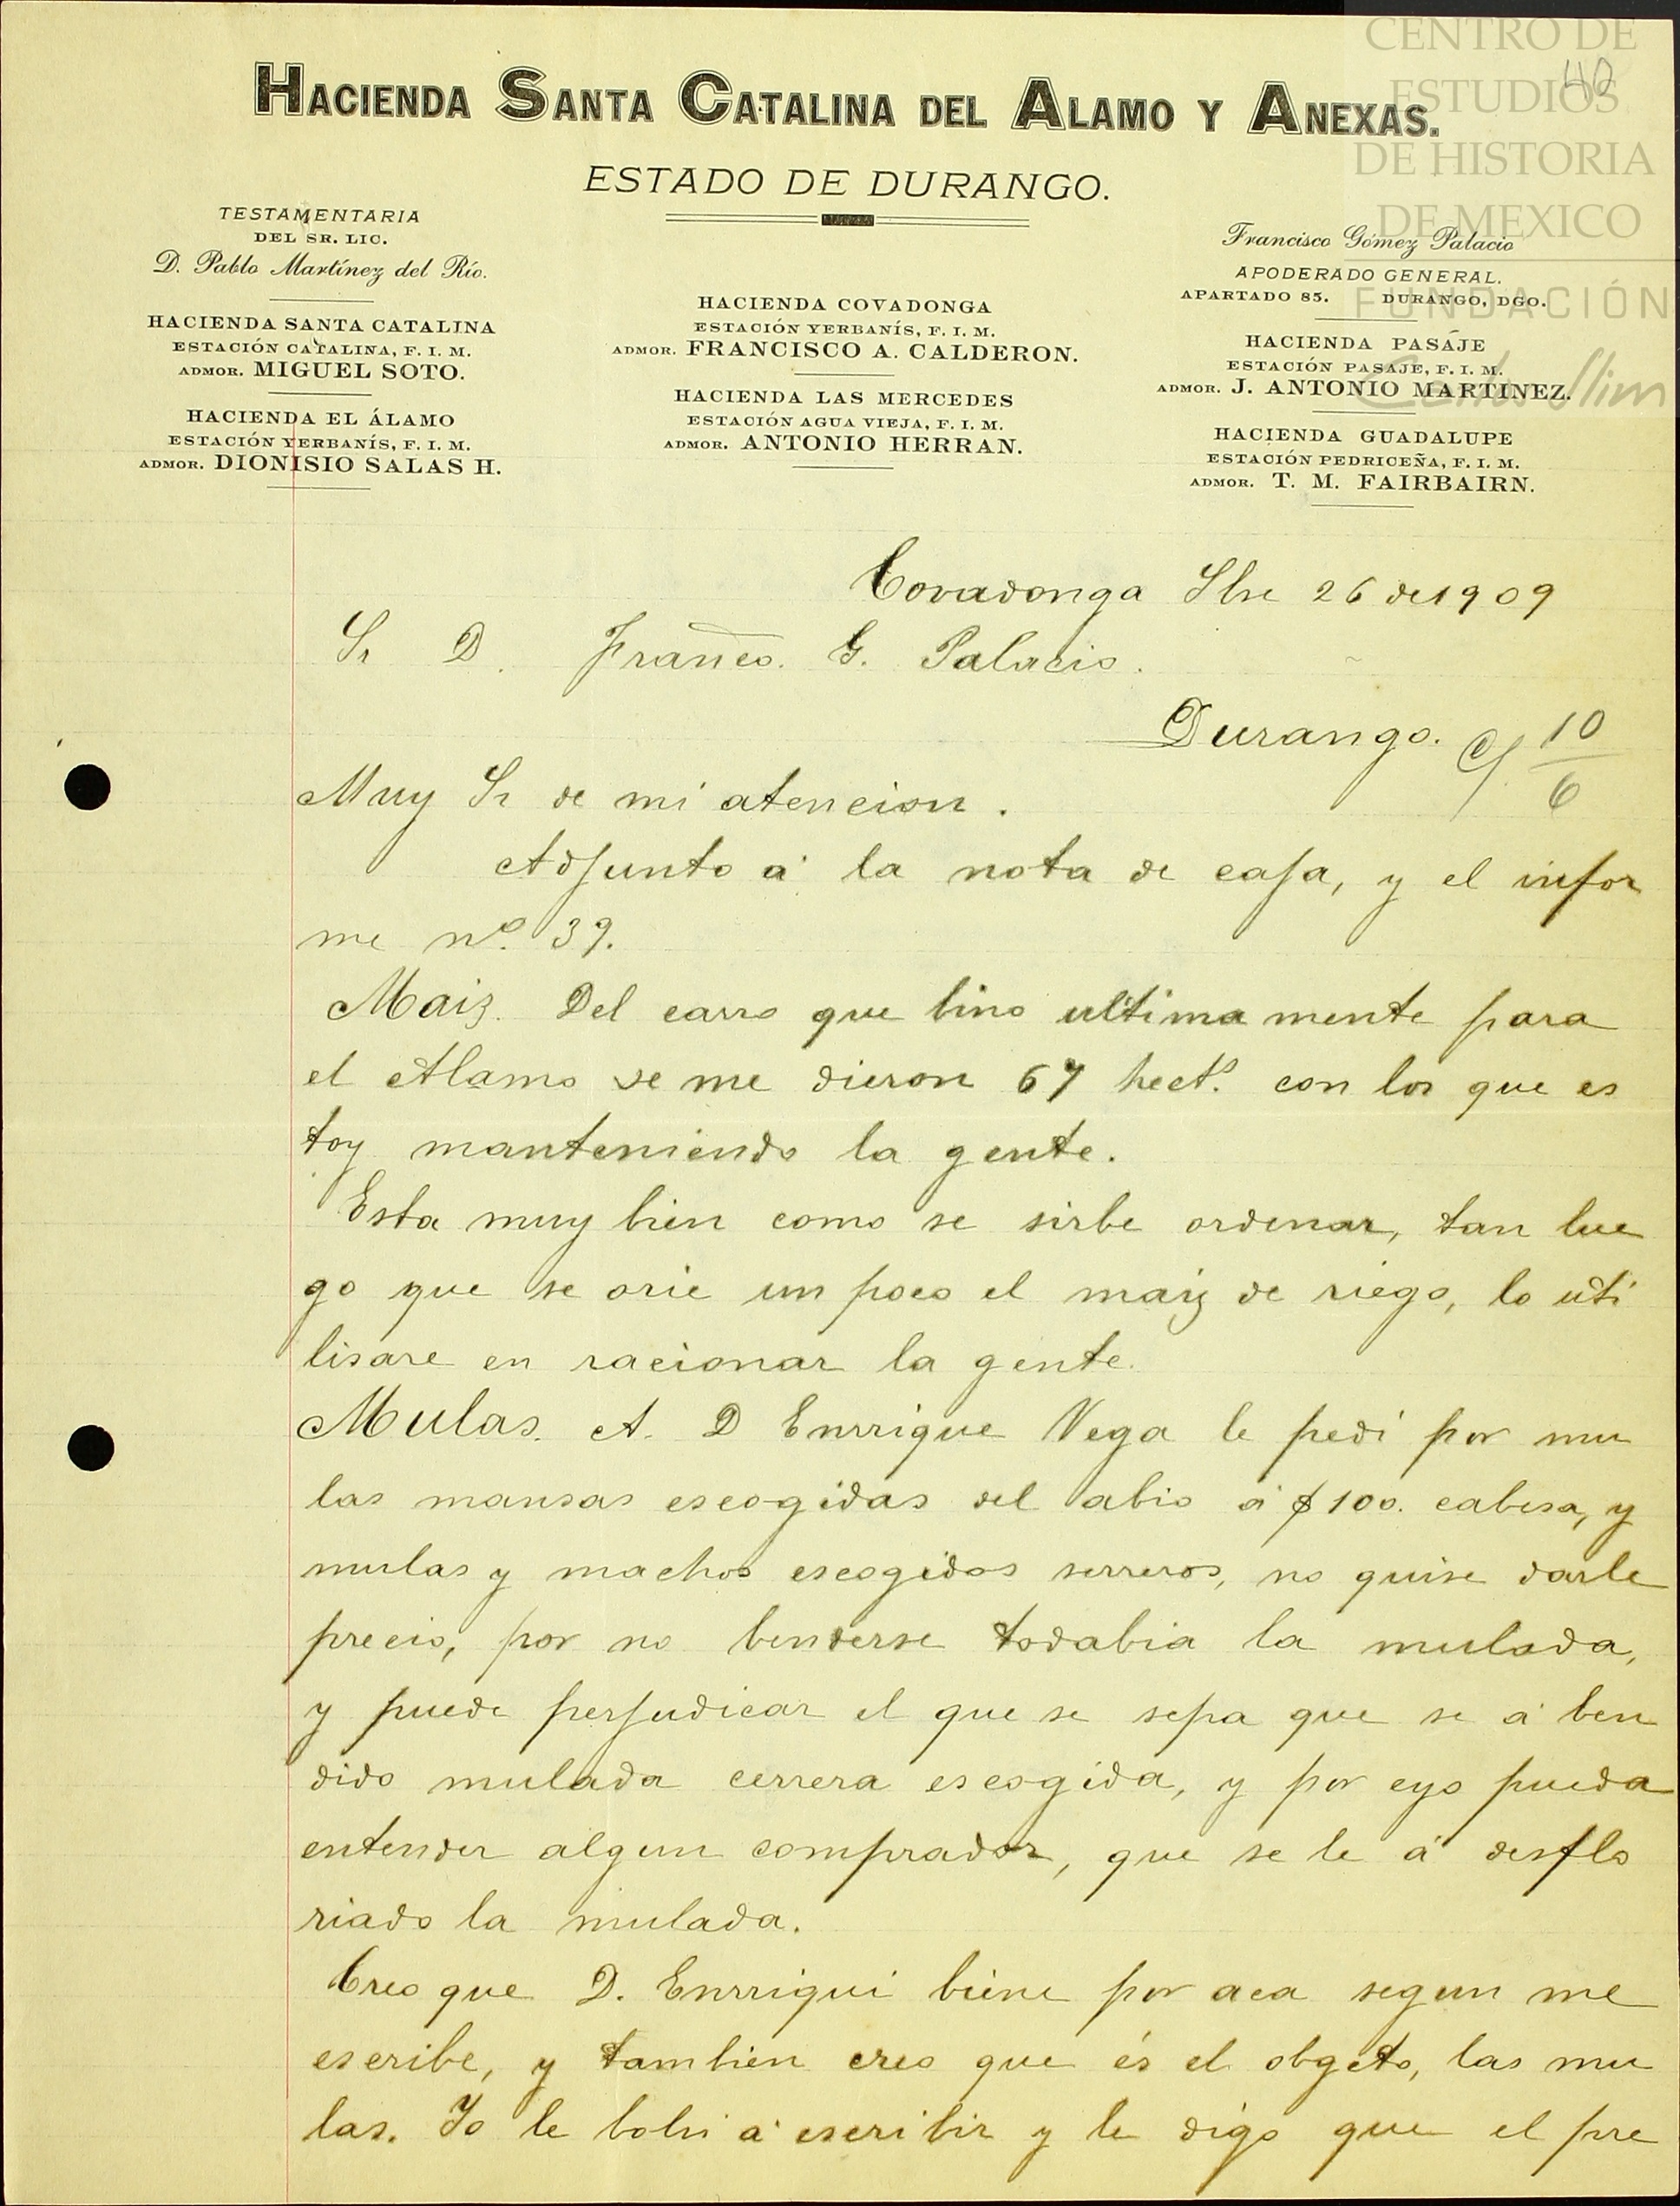 CENTRO DE
ESTUDIOS
DE HISTORIA
DE MEXICO
FUNDACIÓN
Carlos Slim
40
HACIENDA SANTA CATALINA DEL ALAMO Y ANEXAS.
ESTADO DE DURANGO.
TESTAMENTARIA
DEL SR. LIC.
D. Pablo Martínez del Río.
HACIENDA SANTA CATALINA
ESTACIÓN CATALINA, F. I. M.
ADMOR. MIGUEL SOTO.
HACIENDA EL ÁLAMO
ESTACIÓN YERBANÍS, F. I. M.
ADMOR. DIONISIO SALAS H.
HACIENDA COVADONGA
ESTACIÓN YERBANÍS, F. I. M.
ADMOR. FRANCISCO A. CALDERON.
HACIENDA LAS MERCEDES
ESTACIÓN AGUA VIEJA, F. I. M.
ADMOR. ANTONIO HERRAN.
Francisco Gómez Palacio
APODERADO GENERAL.
APARTADO 85. DURANGO, DGO.
HACIENDA PASAJE
ESTACIÓN PASAJE, F. I. M.
ADMOR. J. ANTONIO MARTINEZ.
HACIENDA GUADALUPE
ESTACIÓN PEDRICEÑA, F. I. M.
ADMOR. T. M. FAIRBAIRN.
Covadonga Sbre 26 de 1909
Sr D. Franco. G. Palacio.
Durango. C/ 10/6
Muy Sr de mi atencion.
Adjunto á la nota de caja, y el infor
me no. 39.
Maiz. Del carro que bino ultima mente para
el Alamo se me dieron 67 hects. con los que es
toy manteniendo la gente.
Esta muy bien como se sirbe ordenar, tan lue
go que se orie un poco el maiz de riego, lo uti
lisare en racionar la gente.
Mulas. A. D Enrrique Vega le pedi por mu
las mansas escogidas del abio á $100. cabesa, y
mulas y machos escogidos serreros, no quise darle
precio, por no benderse todabia la mulada,
y puede perjudicar el que se sepa que se á ben
dido mulada cerrera escogida, y por eyo pueda
entender algun comprador, que se le á desflo
riado la mulada.
Creo que D. Enrriqui biene por aca segun me
escribe, y tambien creo que és el obgeto, las mu
las. Yo le bolbi á escribir y le digo que el pre